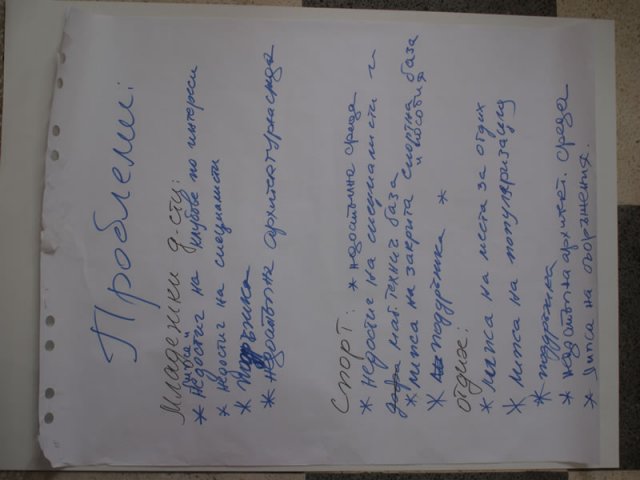 Проблеми:
Младежки д-сти:
* недостиг на клубове по интереси
липса
* недостиг на специалисти
* поддръжка
* недостъпна архитектурна среда
СПОРТ: * недостъпна среда
* недостиг на специалисти и
мат. технич. база
* липса на закрита спортна база
и пособия
* поддръжка *
ОТДИХ:
* липса на места за отдих
* липса на популяризация
* поддръжка
* недостъпна архитект. среда
* липса на съоръжения.